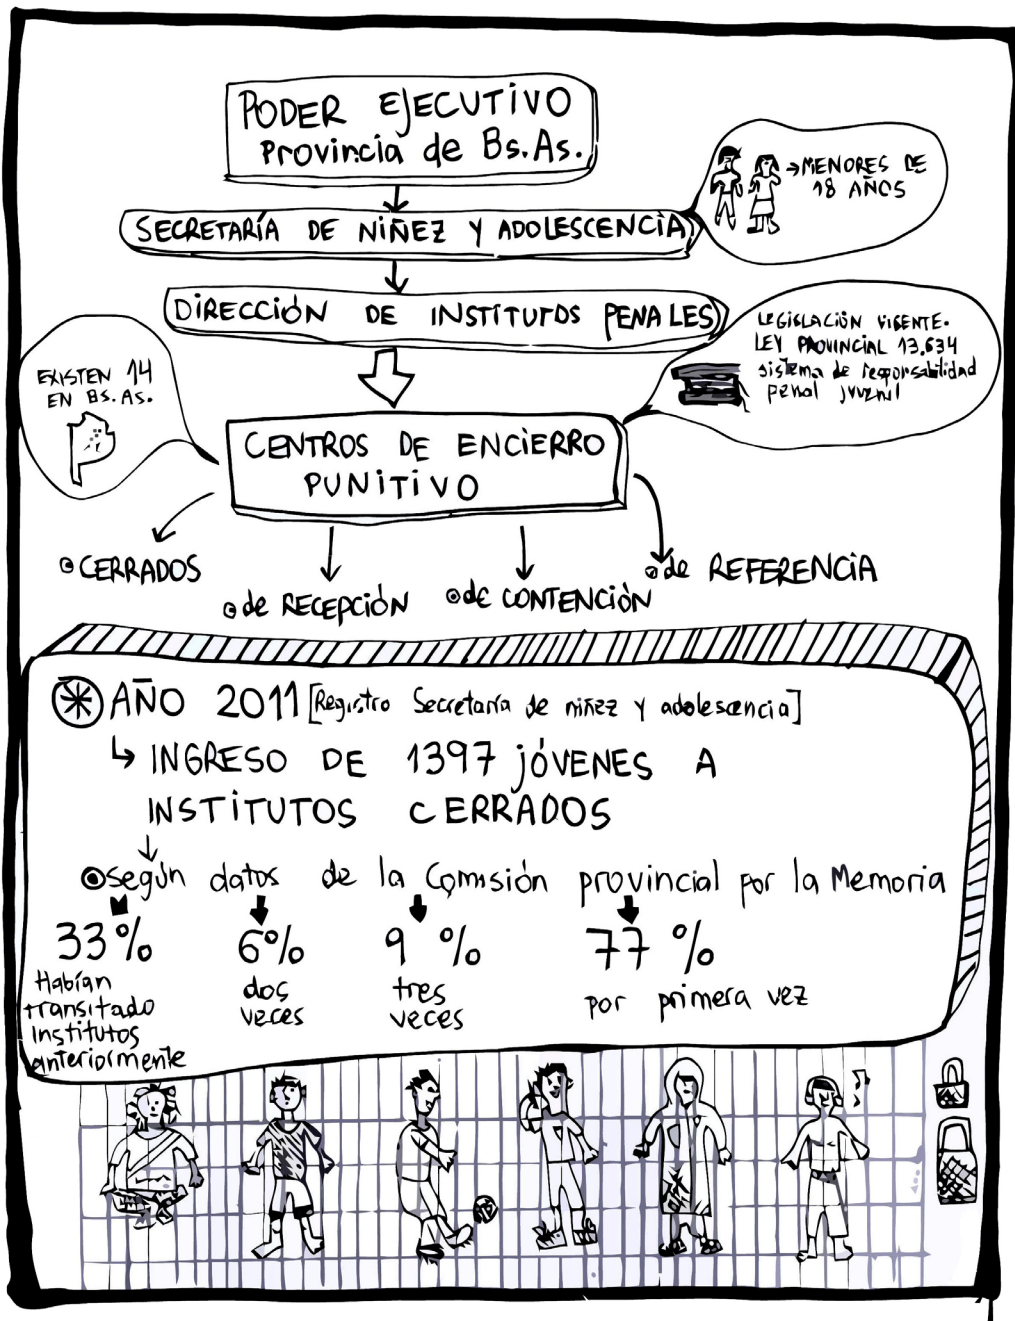 PODER EJECUTIVO
Provincia de Bs.As.
SECRETARÍA DE NIÑEZ Y ADOLESCENCIA
→MENORES DE
18 AÑOS
DIRECCIÓN DE INSTITUTOS PENALES
LEGISLACIÓN VIGENTE.
LEY PROVINCIAL 13.634
sistema de responsabilidad
penal juvenil
EXISTEN 14
EN BS. AS.
CENTROS DE ENCIERRO
PUNITIVO
CERRADOS
de RECEPCIÓN
de CONTENCIÓN
de REFERENCIA
AÑO 2011 [Registro Secretaría de niñez y adolescencia]
↳ INGRESO DE 1397 JÓVENES A
INSTITUTOS CERRADOS
según datos de la Comisión provincial por la Memoria
33%
Habían
transitado
institutos
anteriormente
6%
dos
veces
9 %
tres
veces
77 %
por primera vez